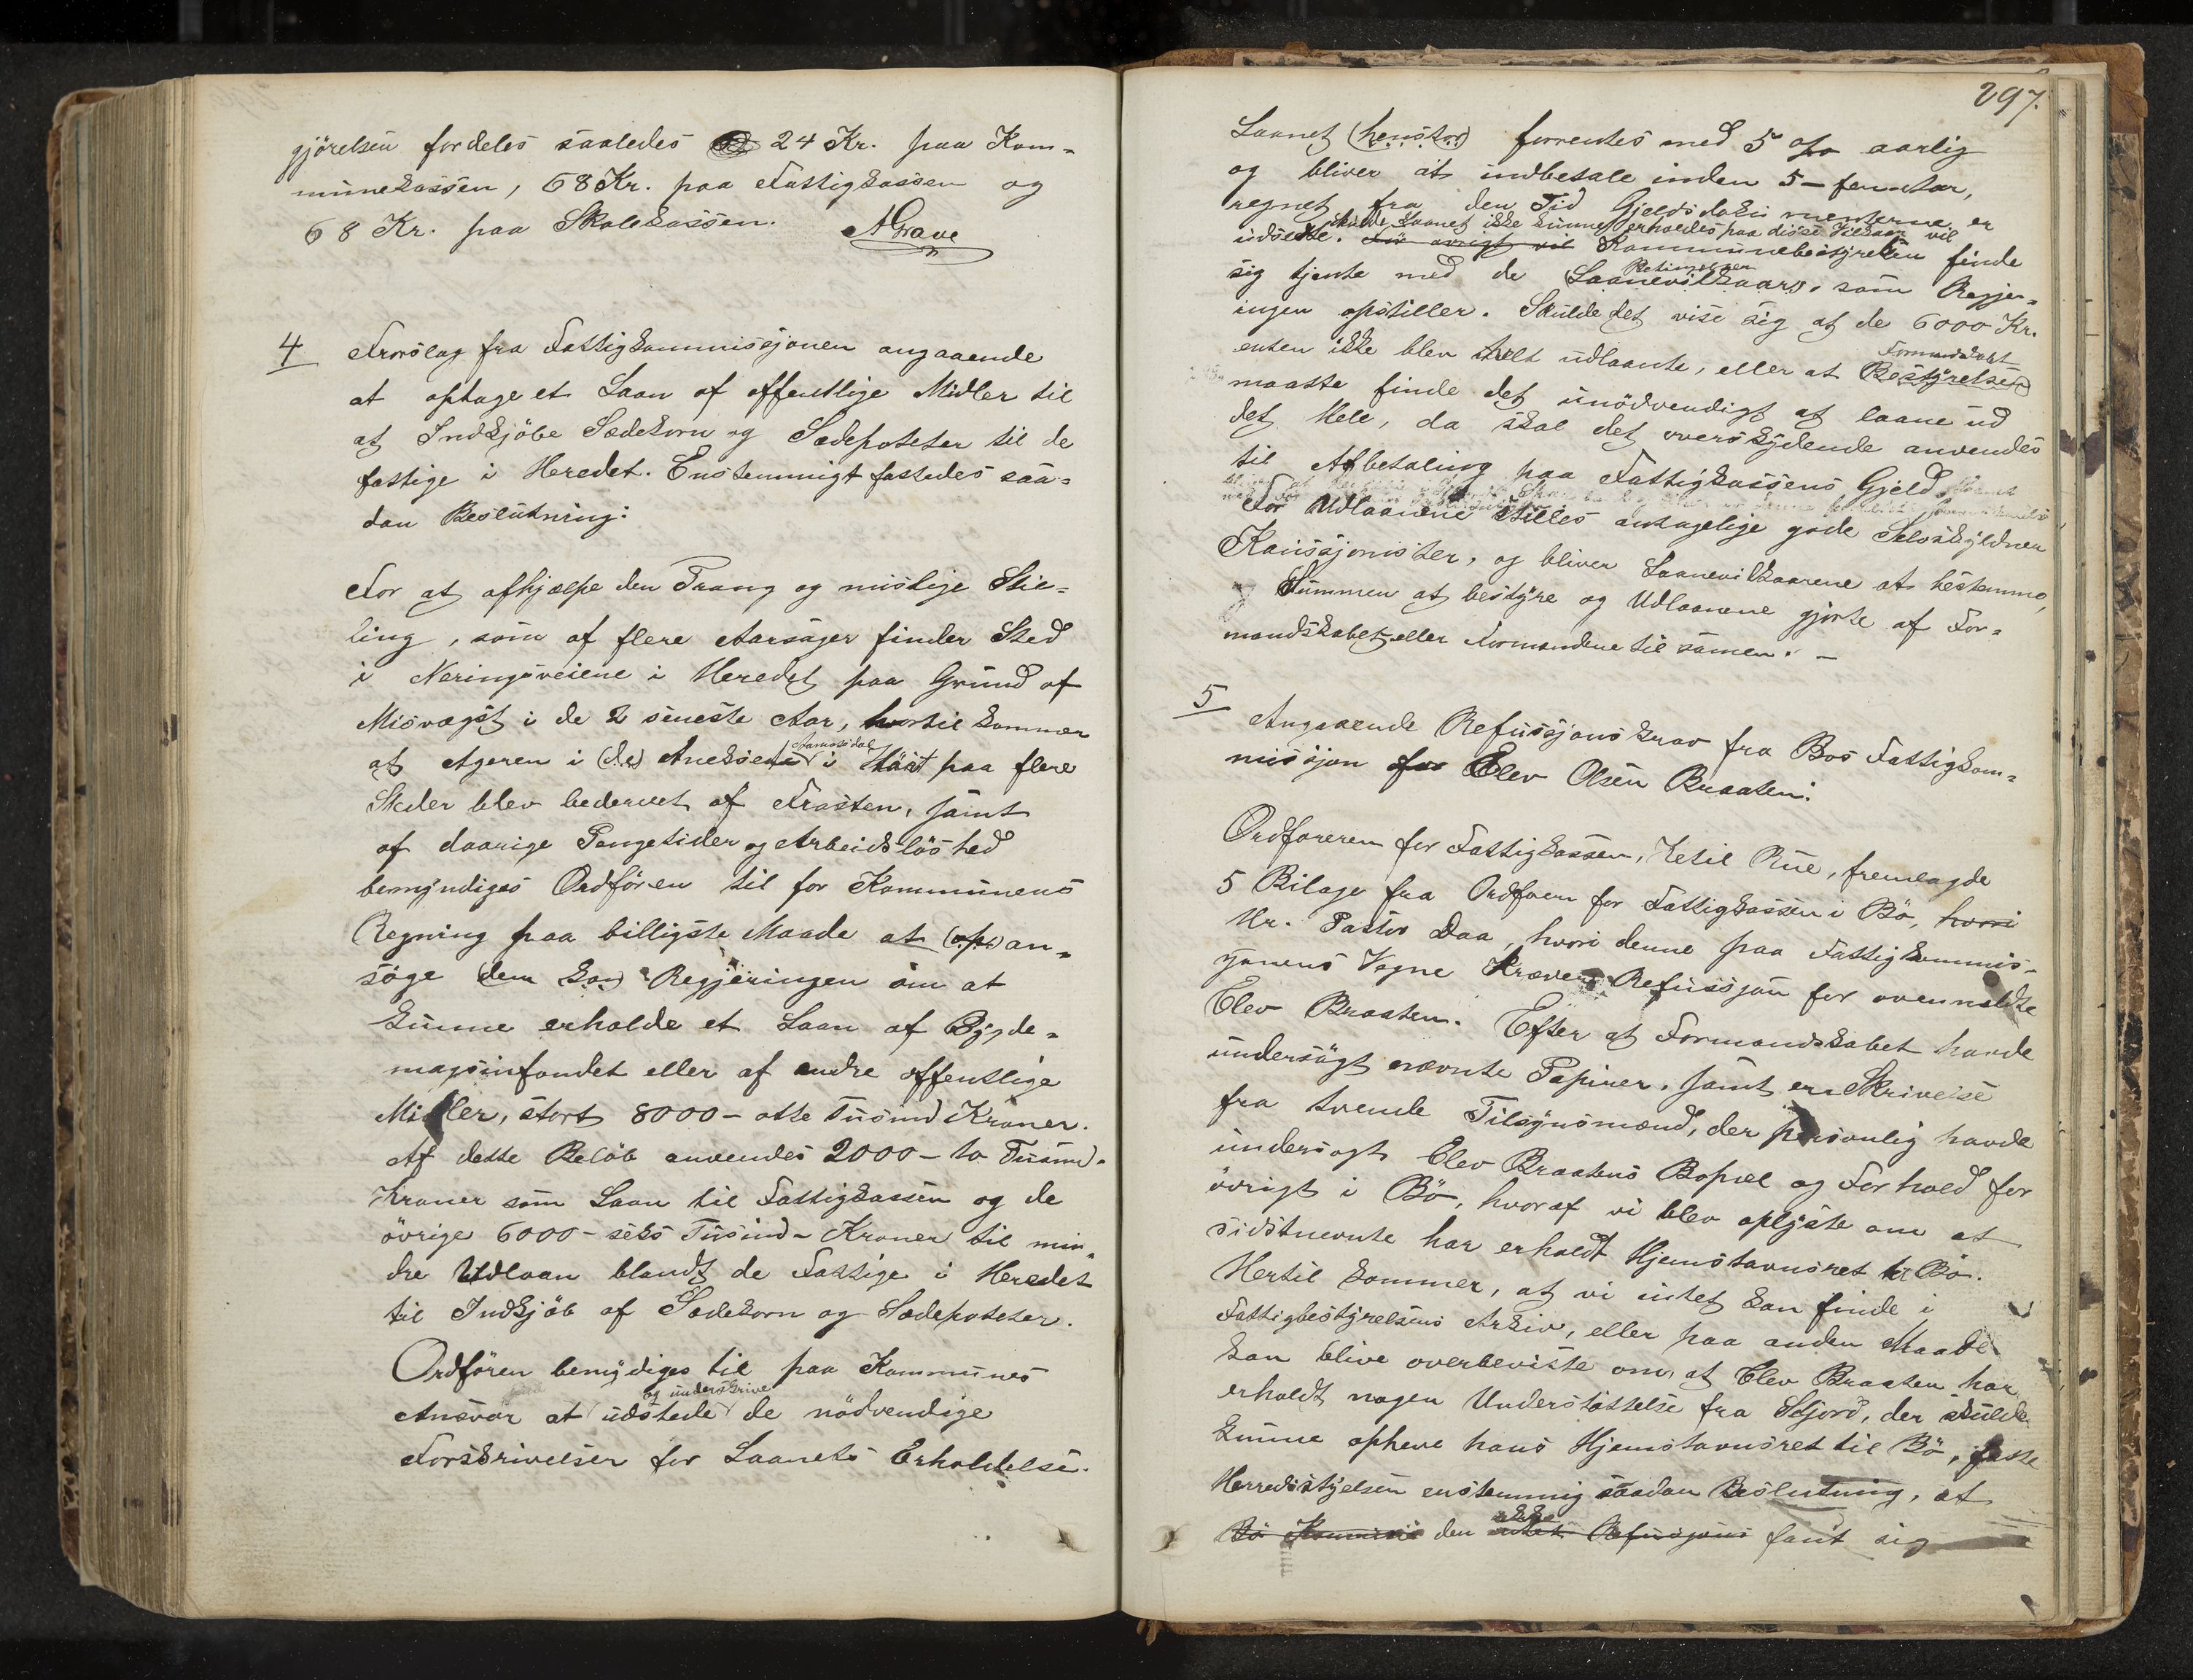 gjörelsen fordeles saaledes 24 Kr. paa Kom-
munekassen, 68 Kr. paa Fattigkassen og
68 Kr. paa Skolekassen. AGrave
4 Forslag fra Fattigkommissjonen angaaende
at optage et Laan af offentlige Midler til
at Indkjöbe Sædekorn og Sædepoteter til de
fattige i Heredet. Enstemmigt fattedes saa-
dan Beslutning:
For at afhjælpe den Trang og mislige Stil-
ling, som af flere Aarsager finder Sted
i Næringsveiene i Heredet paa Grund af
Misvægst i de 2 seneste Aar, hvortil kommer
at Ageren i (de) Anekset i Höst paa flere
Steder blev bedervet af Frosten, samt
af daarige Pengetider og Arbeidslöshed
bemyndiges Ordfören til for Kommunens
Regning paa billigste Maade at (op) an-
söge (den kon) Regjeringen om at
kunne erholde et Laan af Bygde-
magsinfondet eller af andre offentlige
Midler, stort 8000 - otte Tusind Kroner.
Af dette Belöb anvendes 2000 - to Tusind-
Kroner som Laan til Fattigkassen og de
övrige 6000 - seks Tusind - Kroner til min-
dre Udlaan blandt de Fattige i Heredet
til Indkjöb af Sædekorn og Sædepoteter.
Ordfören bemydiges til paa Kommunes
og underskrive
Ansvar at udstede de nödvendige
Forskrivelser for Laanets Erholdelse.
297.
Laanet (henstor) forrentes med 5 o/o aarlig
og bliver at indbetale inden 5 - fem Aar,
regnet fra den Tid Gjeldsdokumenterne er
skulde Laanet ikke kunne erholdes paa disse Vilkaar vil
udstedte. For övrigt vil Kommunebestyrelsen finde
sig tjente med de (Laanevilkaar), som Regjer-
ingen opstiller. Skulde det vise sig at de 6000 Kr.
Formandskabet
enten ikke blev helt udlaante, eller at Bestyrelsen
maatte finde det unödvendigt at laane ud
det Hele, da skal det overskydende anvendes
til Afbetaling paa Fattigkassens Gjeld.
For Udlaanene stilles antagelige gode Selvskyldner
Kaussjonister, og bliver Laanevilkaarene at bestemme,
Summen at bestyre og Udlaanene gjorte af For-
mandskabet eller Formændene til samen. -
5 Angaaende Refussjonskrav fra Bös Fattigkom-
missjon for Elev Olsen Braaten.
Ordföreren for Fattigkassen, Ketil Rue, fremlagde
5 Bilage fra Ordförn for Fattigkassen i Bö, hvori
Hr. Pastor Daa, hvori denne paa Fattigkommis-
jonens Vegne Kræver Refussjon for ovenmeldte
Elev Braaten. Efter at Formandskabet havde
undersögt nævnte Papirer, samt en Skrivelse
fra tvende Tilsynsmænd, der personlig havde
undersogt Elev Braatens Bopæl og Forhold for
övrigt i Bö, hvoraf vi blev oplyste om at
sidstnevnte har erholdt Hjemstavnsret til Bö.
Hertil kommer, at vi intet kan finde i
Fattigbestyrelsens Arkiv, eller paa anden Maade
kan blive overbeviste om, at Elev Braaten har
erholdt nogen Understöttelse fra Seljord, der skulde
kunne opheve hans Hjemstavnsret til Bö, fatte
Herredsstyelsen enstemmig saadan Beslutning, at
ikke
Bö den Refusjons fant sig